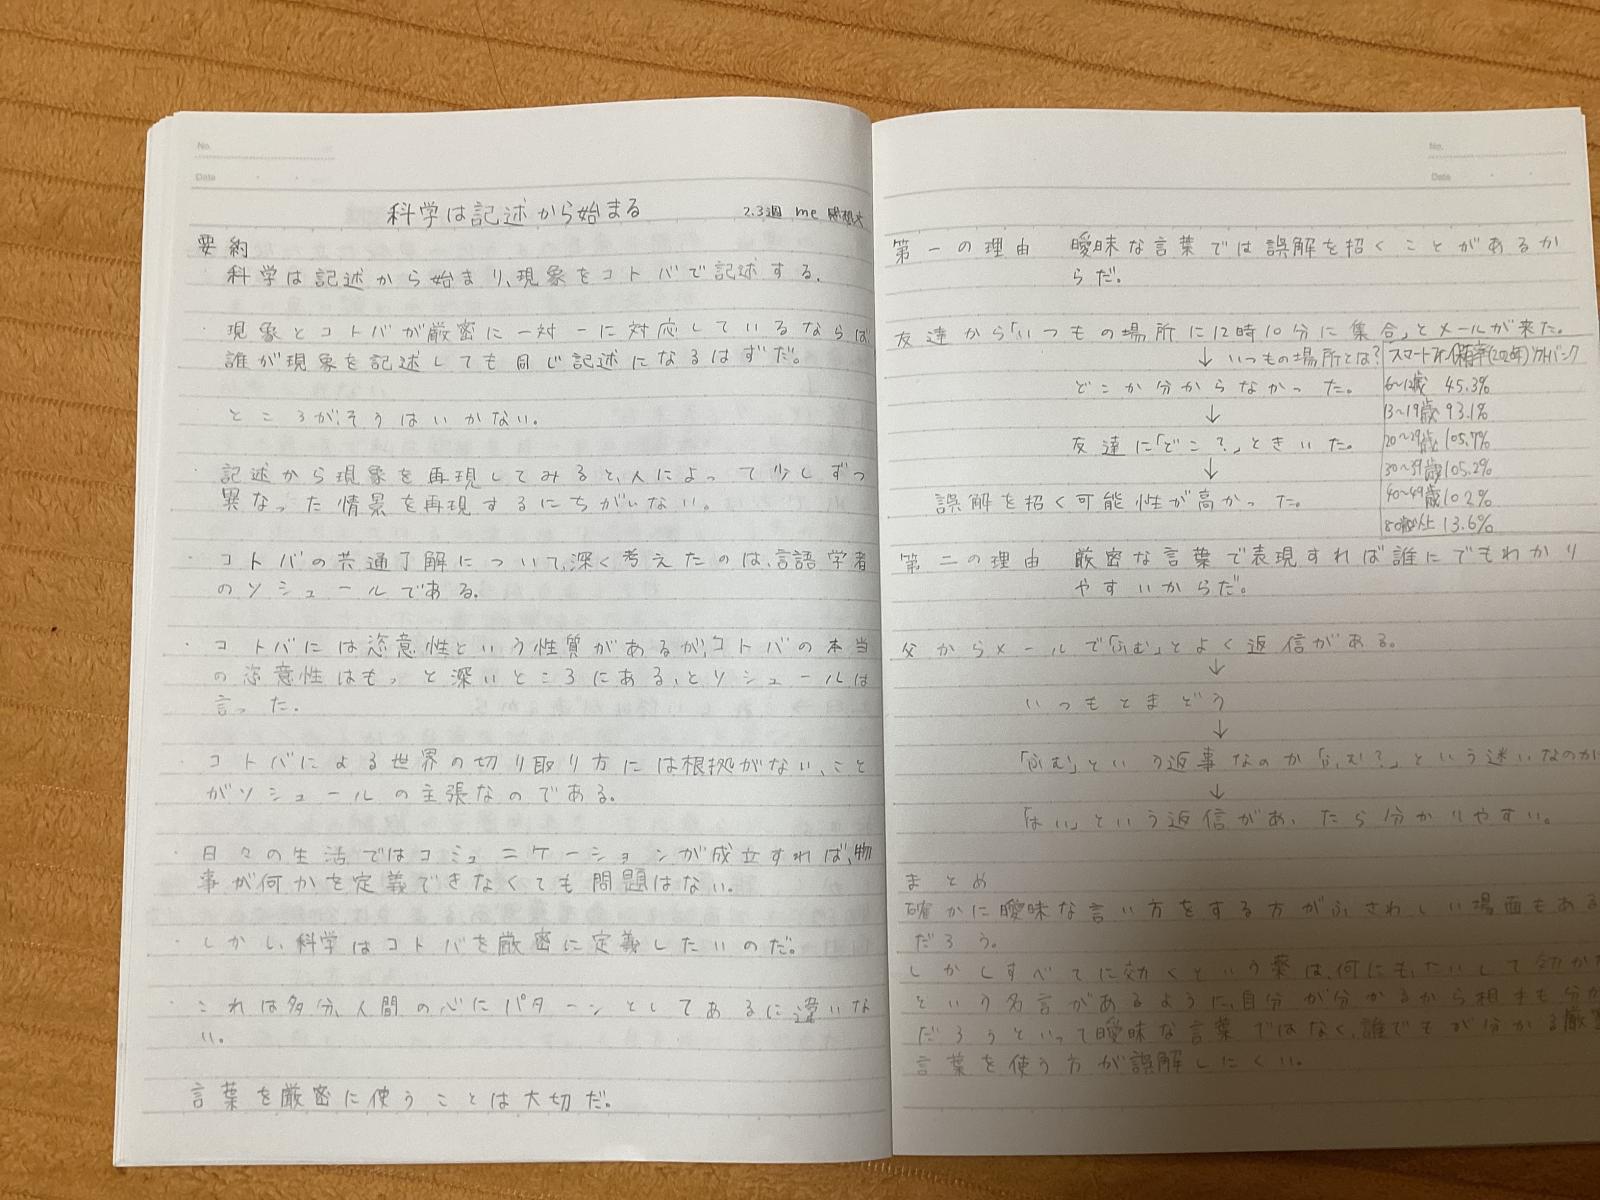 No.
Date
科学は記述から始まる 2.3週 me 感想文
要約
科学は記述から始まり、現象をコトバで記述する。
・現象とコトバが厳密に一対一に対応しているならば、
誰が現象を記述しても同じ記述になるはずだ。
ところが、そうはいかない。
・記述から現象を再現してみると、人によって少しずつ
異なった情景を再現するにちがいない。
・コトバの共通了解について、深く考えたのは、言語学者
のソシュールである。
・コトバには恣意性という性質があるが、コトバの本当
の恣意性はもっと深いところにある、とソシュールは
言った。
・コトバによる世界の切り取り方には根拠がない、こと
がソシュールの主張なのである。
・日々の生活ではコミュニケーションが成立すれば、物
事が何かを定義できなくても問題はない。
・しかし、科学はコトバを厳密に定義したいのだ。
・これは多分、人間の心にパターンとしてあるに違いな
い。
言葉を厳密に使うことは大切だ。
No.
Date
第一の理由 曖昧な言葉では誤解を招くことがあるか
らだ。
友達から「いつもの場所に12時10分に集合」とメールが来た。
↓いつもの場所とは?
どこか分からなかった。
↓
友達に「どこ?」ときいた。
↓
誤解を招く可能性が高かった。
スマートフォン保有率(2020年)ソフトバンク
6~12歳 45.3%
13~19歳 93.1%
20~29歳 105.7%
30~39歳 105.2%
40~49歳 102%
80歳以上 13.6%
第二の理由 厳密な言葉で表現すれば誰にでもわかり
やすいからだ。
父からメールで「ふむ」とよく返信がある。
↓
いつもとまどう
↓
「ふむ」という返事なのか「ふむ?」という迷いなのか
↓
「はい」という返信があったら分かりやすい。
まとめ
確かに曖昧な言い方をする方がふさわしい場面もある
だろう。
しかしすべてに効くという薬は、何にもたいして効かな
という名言があるように、自分が分かるから相手も分か
だろうといって曖昧な言葉ではなく、誰でもが分かる厳密
言葉を使う方が誤解しにくい。